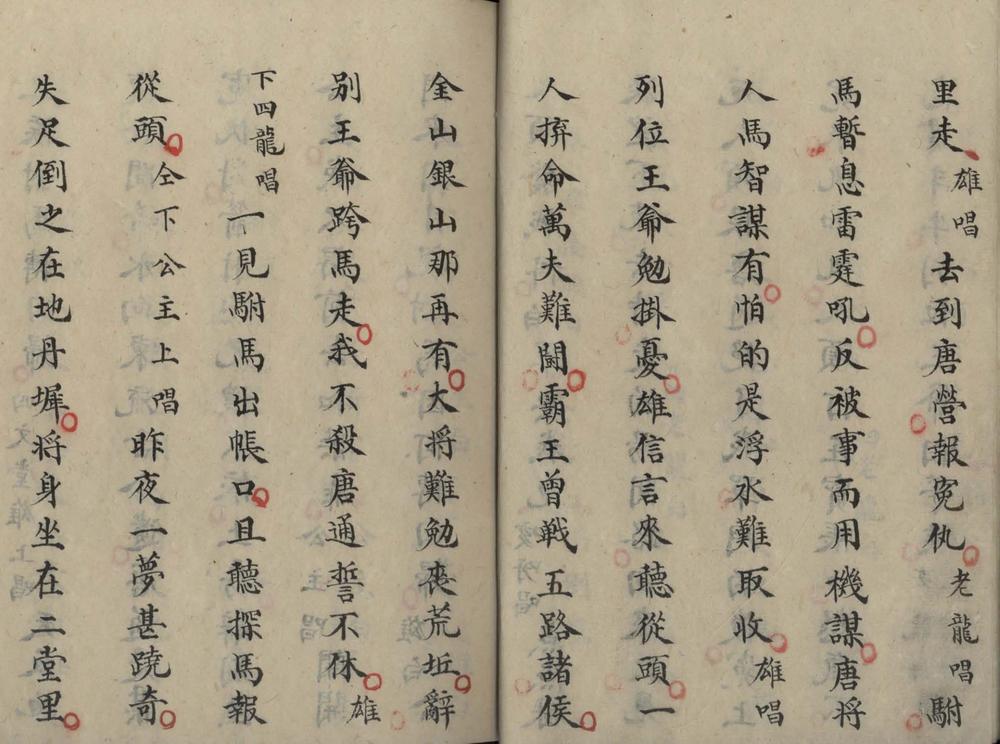 里走雄唱去到唐營報冤仇老龍唱駙
馬暫息雷霆吼反被事而用機謀唐将
人馬智謀有怕的是浮水難取收雄唱
列位王爺勉掛憂雄信言來聽從頭一
人拚命萬夫難闘霸王曾戰五路諸侯
金山銀山那再有大将難勉喪荒坵辭
别王爺跨馬走我不殺唐通誓不休雄
下四龍唱一見駙馬出帳口且聽探馬報
從頭仝下公主上唱昨夜一夢甚蹺奇
失足倒之在地丹墀将身坐在二堂里